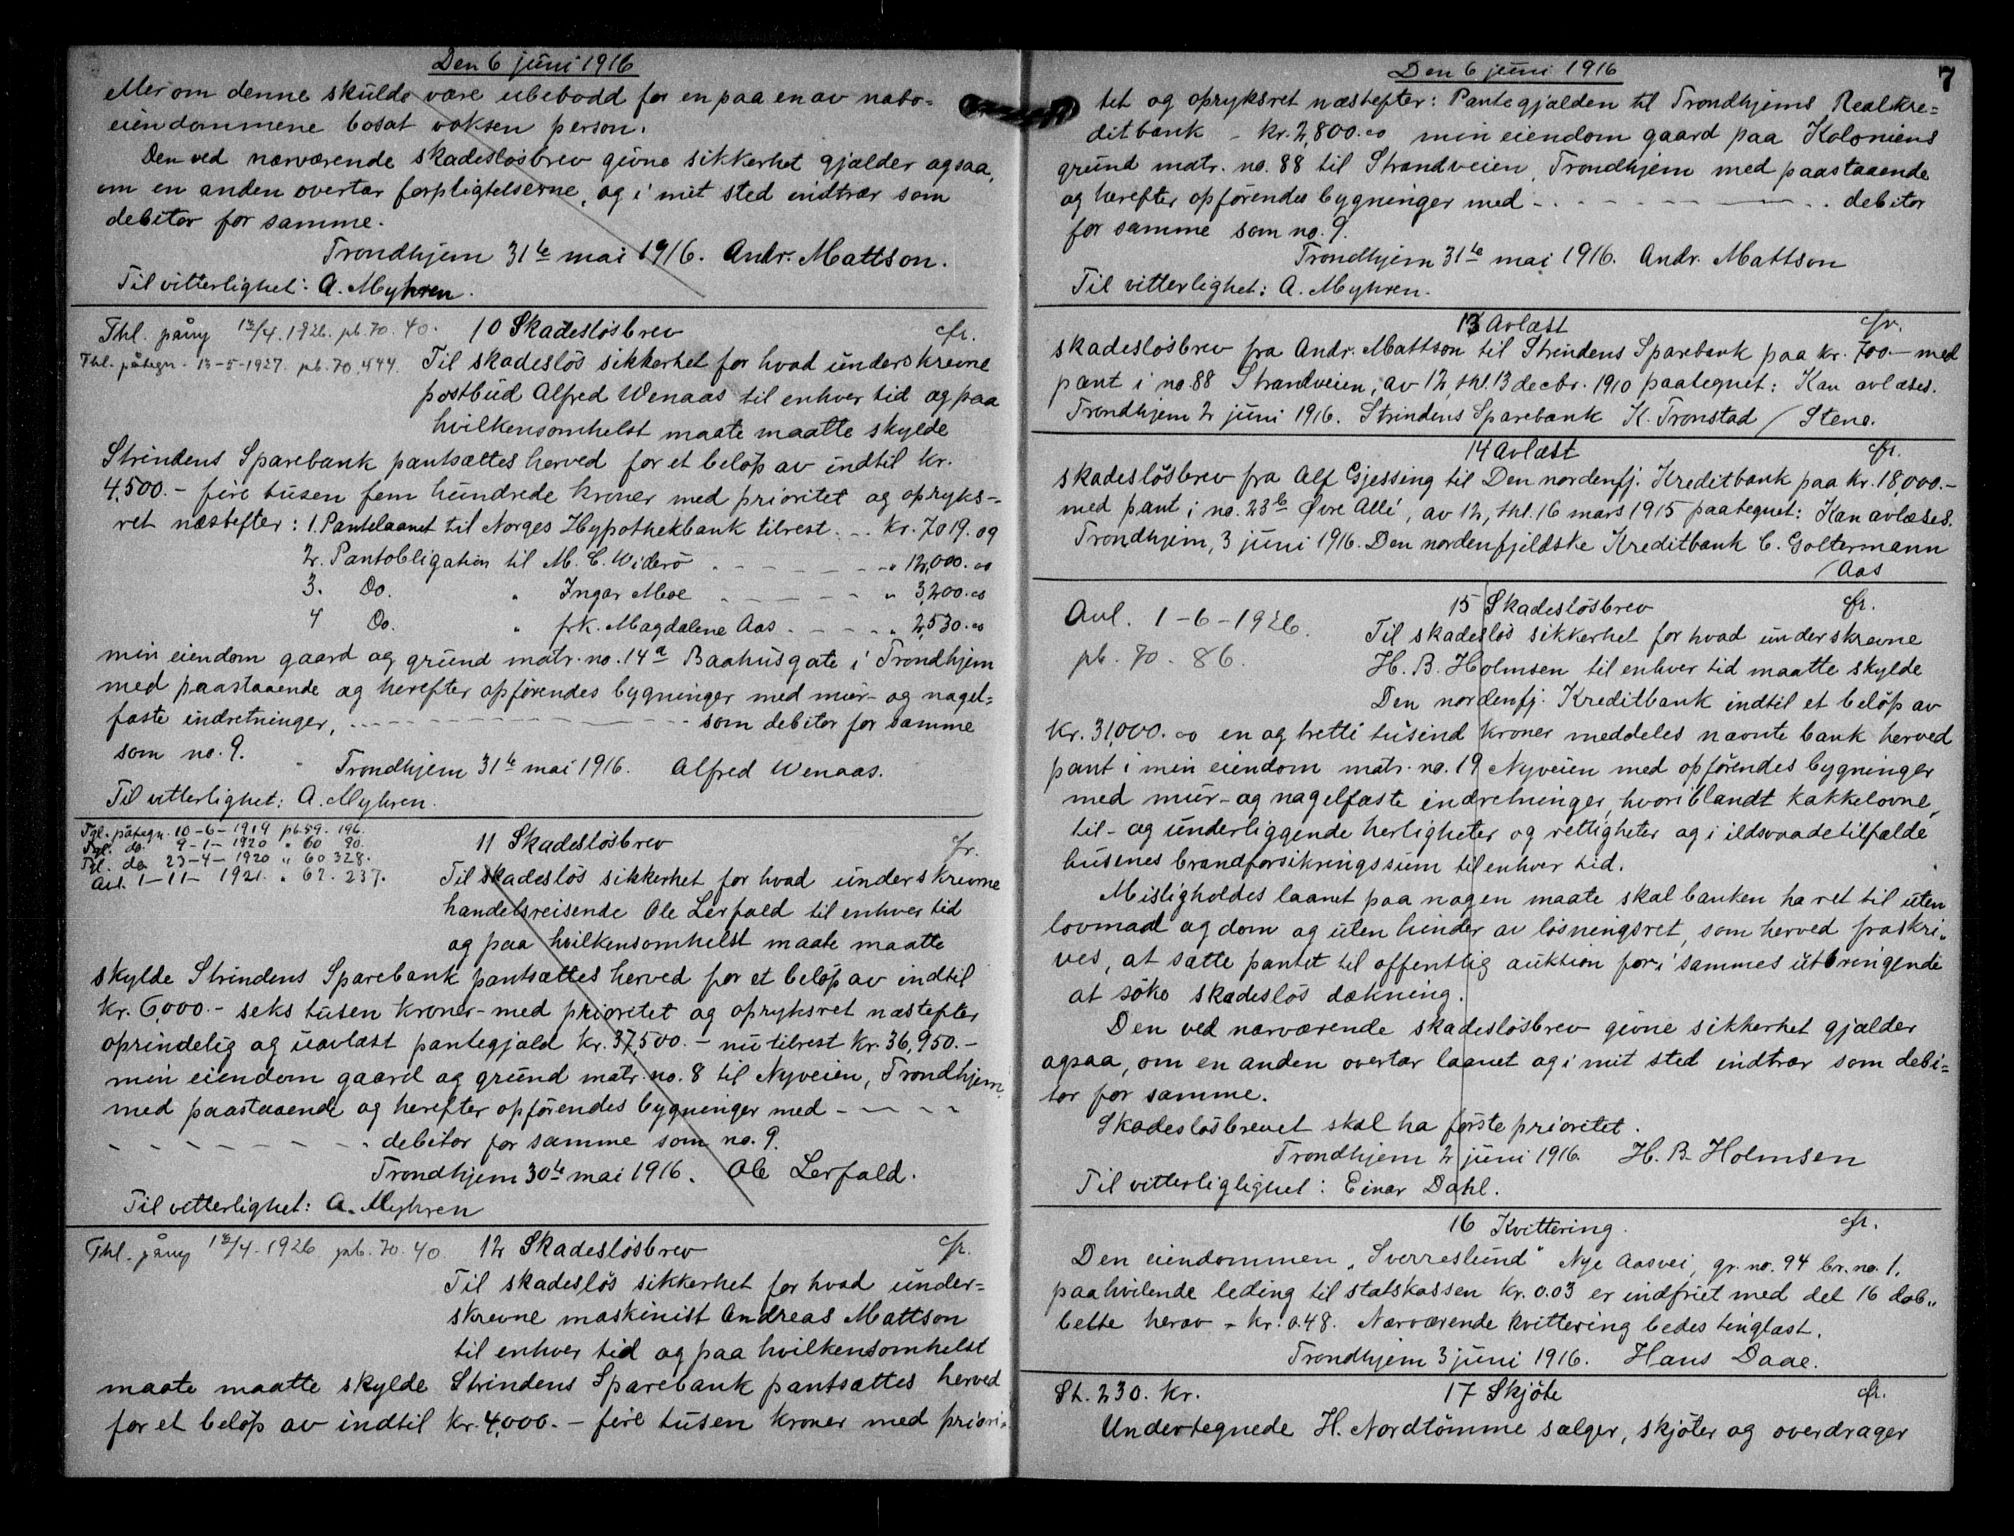 Den 6 juni 1916
eller om denne skulde være ubebodd for en paa en av nabo=
eiendommene bosat voksen person.
Den ved nærværende skadesløsbrev givne sikkerhet gjælder ogsaa,
om en anden overtar forpligtelserne, og i mit sted indtrær som
debitor for samme.
Trondhjem 31te mai 1916. Andr. Mattson.
Til vitterlighet: A. Myhren.
Thl. påny 12/4. 1926. pb. 70. 40. 10 Skadesløsbrev cfr.
Thl. påtegn. 13-5-1927. pb. 70. 444. Til skadesløs sikkerhet for hvad underskrevne
postbud Alfred Wenaas til enhver tid og paa
hvilkensomhelst maate maatte skylde
Strindens Sparebank pantsættes herved for et beløp av indtil kr.
4,500.- fire tusen fem hundrede kroner med prioritet og opryks-
ret næstefter: 1. Pantelaanet til Norges Hypothekbank tilrest . . . kr. 7019.09
2. Pantobligation til M. C. Widerø . - - - - - " 12,000.00
3. Do. " Ingar Moe . - - - - " 3,200.00
4 Do. " frk. Magdalene Aas . - - - " 2,530.00
min eiendom gaard og grund matr. no. 14a Baahusgate i Trondhjem
med paastaaende og herefter opførendes bygninger med mur- og nagel=
faste indretninger, - - - - - - - - som debitor for samme
som no. 9.
Trondhjem 31te mai 1916. Alfred Wenaas.
Til vitterlighet: A. Myhren.
Tgl. påtegn. 10-6-1919 pb. 59. 196.
Tgl. do. 9-1-1920 " 60 90.
Tgl. do 23-4-1920 " 60 328.
Avl. 1-11-1921. " 62. 237.
11 Skadesløsbrev cfr.
Til skadesløs sikkerhet for hvad underskrevne
handelsreisende Ole Lerfald til enhver tid
og paa hvilkensomhelst maate maatte
skylde Strindens Sparebank pantsættes herved for et beløp av indtil
kr. 6,000.- seks tusen kroner- med prioritet og opryksret næstefter
oprindelig og uavlæst pantegjæld kr. 37,500.- nu tilrest kr. 36,950.-
min eiendom gaard og grund matr. no. 8 til Nyveien, Trondhjem
med paastaaende og herefter opførendes bygninger med - - - -
- - - - - - - - debitor for samme som no. 9.
Trondhjem 30te mai 1916. Ole Lerfald.
Til vitterlighet: A. Myhren
Thl. påny 12/4-1926. pb. 70. 40. 12 Skadesløsbrev cfr.
Til skadesløs sikkerhet for hvad under=
skrevne maskinist Andreas Mattson
til enhver tid og paa hvilkensomhelst
maate maatte skylde Strindens Sparebank pantsættes herved
for et beløp av indtil kr. 4,000.- fire tusen kroner med priori=
Den 6 juni 1916
7
tet og opryksret næstefter: Pantegjælden til Trondhjems Realkre=
ditbank - kr. 2,800.00 min eiendom gaard paa Koloniens
grund matr. no. 88 til Strandveien, Trondhjem med paastaaende
og herefter opførendes bygninger med - - - - - - - - debitor
for samme som no. 9.
Trondhjem 31te mai 1916. Andr. Mattson
Til vitterlighet: A. Myhren.
13 Avlæst cfr.
skadesløsbrev fra Andr. Mattson til Strindens Sparebank paa kr. 700.- med
pant i no. 88 Strandveien, av 12, thl. 13 decbr. 1910 paategnet: Kan avlæses.
Trondhjem 2 juni 1916. Strindens Sparebank K. Tronstad / Stene.
14 Avlæst cfr.
skadesløsbrev fra Alf Gjessing til Den nordenfj. Kreditbank paa kr. 18,000.-
med pant i no. 23b Øvre Allé, av 12, thl. 16 mars 1915 paategnet: Kan avlæses.
Trondhjem, 3 juni 1916. Den nordenfjeldske Kreditbank C. Goltermann
/ Aas
Avl. 1-6-1926. 15 Skadesløsbrev cfr.
pb. 70. 86.
Til skadesløs sikkerhet for hvad underskrevne
H. B. Holmsen til enhver tid maatte skylde
Den nordenfj. Kreditbank indtil et beløp av
kr. 31,000.00 en og tretti tusind kroner meddeles nævnte bank herved
pant i min eiendom matr. no. 19 Nyveien med opførendes bygninger
med mur- og nagelfaste indretninger, hvoriblandt kakkelovne,
til- og underliggende herligheter og rettigheter og i ildsvaadetilfælde
husenes brandforsikringssum til enhver tid.
Misligholdes laanet paa nogen maate skal banken ha ret til uten
lovmaal og dom og uten hinder av løsningsret, som herved fraskri=
ves, at sætte pantet til offentlig auktion for i sammes utbringende
at søke skadesløs dækning.
Den ved nærværende skadesløsbrev givne sikkerhet gjælder
ogsaa, om en anden overtar laanet og i mit sted indtrær som debi=
tor for samme.
Skadesløsbrevet skal ha første prioritet.
Trondhjem 2 juni 1916. H. B. Holmsen
Til vitterliglighet: Einar Dahl.
16 Kvittering. cfr.
Den eiendommen "Sverreslund" Nye Aasvei, gr. no. 94 br. no. 1.
paahvilende leding til statskassen kr. 0.03 er indfriet med det 16 dob=
belte herav - kr. 0.48. Nærværende kvittering bedes tinglæst.
Trondhjem 3 juni 1916. Hans Daae.
St. 230. kr. 17 Skjøte cfr.
Undertegnede H. Nordtømme sælger, skjøter og overdrager